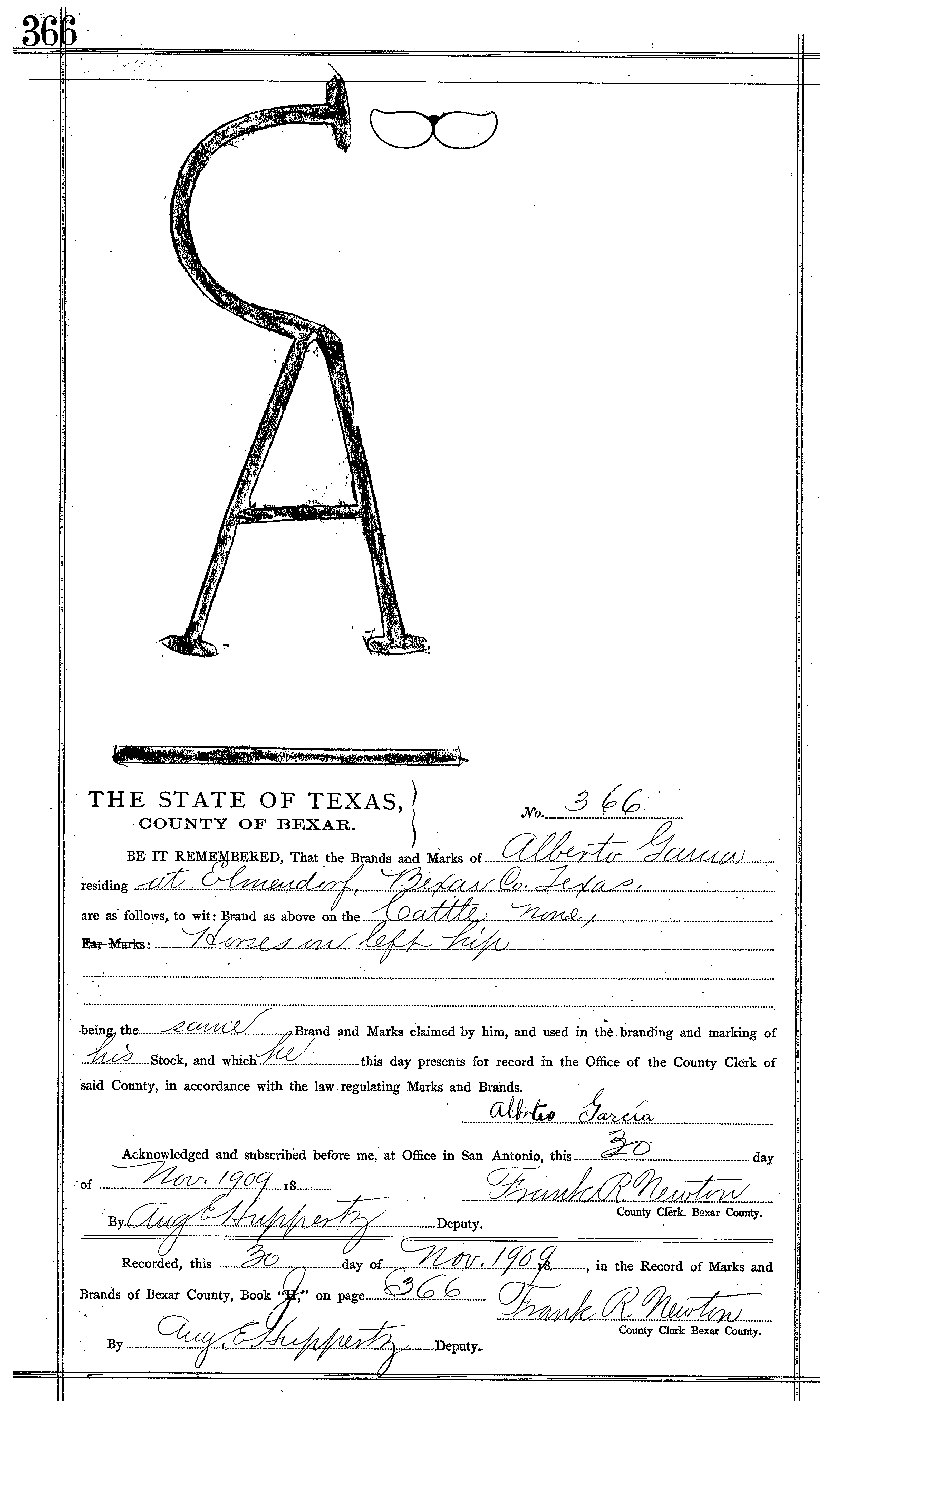 366
THE STATE OF TEXAS,
COUNTY OF BEXAR.
No. 366
BE IT REMEMBERED, That the Brands and Marks of Alberto Garcia
residing at Elmendorf, Bexar Co. Texas.
are as follows, to wit: Brand as above on the Cattle none,
Ear Marks: Horses on left hip
being the same Brand and Marks claimed by him, and used in the branding and marking of
his Stock, and which he this day presents for record in the Office of the County Clerk of
said County, in accordance with the law regulating Marks and Brands.
Alberto García
Acknowledged and subscribed before me, at Office in San Antonio, this 30 day
of Nov. 1909 18
Frank R Newton
County Clerk Bexar County.
By Aug E Huppertz Deputy.
Recorded, this 30 day of Nov. 1909, in the Record of Marks and
Brands of Bexar County, Book "J," on page 366
Frank R Newton
County Clerk Bexar County.
By Aug. E Huppertz Deputy.